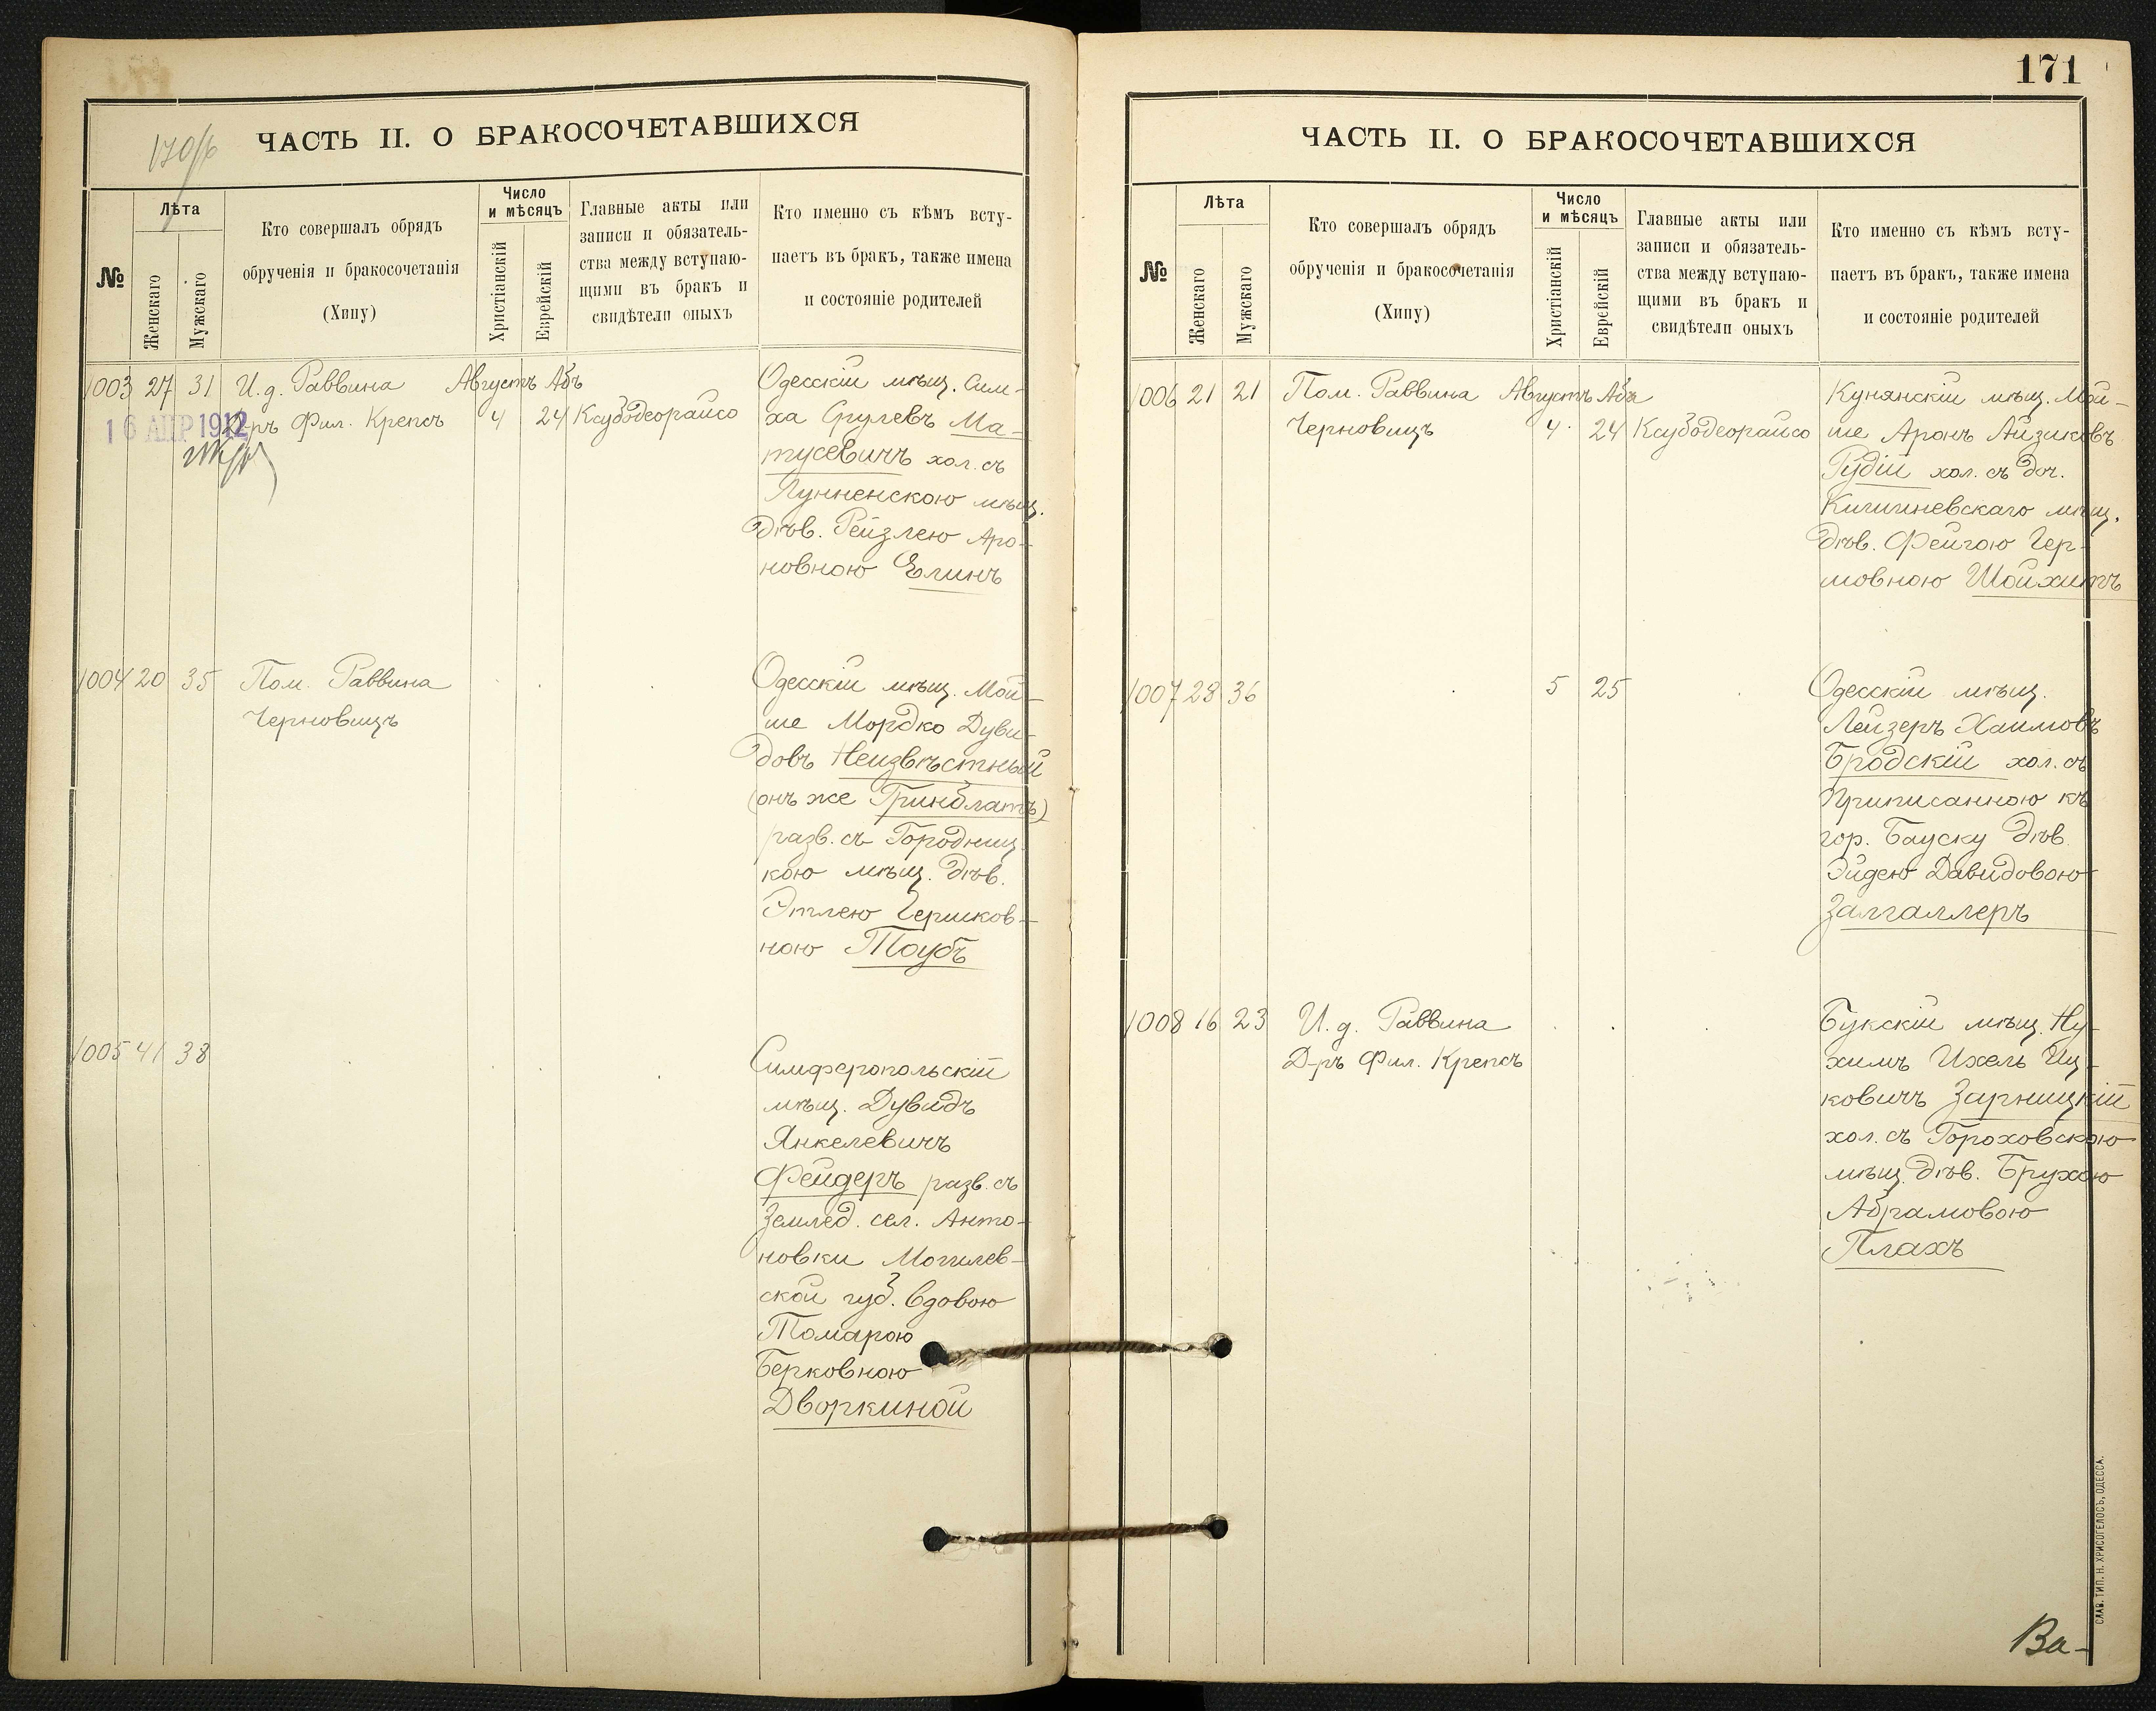 170/б
ЧАСТЬ II. О БРАКОСОЧЕТАВШИХСЯ
№
Лѣта
Женскаго
Мужскаго
Кто совершалъ обрядъ
обрученія и бракосочетанія
(Хипу)
Число
и мѣсяцъ
Христіанскій
Еврейскій
Главные акты или
записи и обязатель-
ства между вступаю-
щими въ бракъ и
свидѣтели оныхъ
Кто именно съ кѣмъ всту-
паетъ въ бракъ, также имена
и состояніе родителей
1003 27 31 И.д. Раввина Августъ Абъ
Д-ръ Фил. Крепсъ 4 24 Ксубодеорайсо
16 АПР 1912
Одесскій мѣщ. Сим-
ха Срулевъ Ма-
тусевичъ хол. съ
Лунненскою мѣщ.
дѣв. Рейзлею Аро-
новною Елинъ
1004 20 35 Пом. Раввина
Черновицъ
Одесскій мѣщ. Мой-
ше Мордко Дуви-
довъ Неизвѣстный
(онъ же Гринблатъ)
разв. съ Городниц-
кою мѣщ. дѣв.
Этлею Гершков-
ною Тоубъ
1005 41 38
Симферопольскій
мѣщ. Дувидъ
Янкелевичъ
Фейдеръ разв. съ
Землед. сел. Анто-
новки Могилев-
ской губ. вдовою
Томарою
Берковною
Дворкиной
171
ЧАСТЬ II. О БРАКОСОЧЕТАВШИХСЯ
№
Лѣта
Женскаго
Мужскаго
Кто совершалъ обрядъ
обрученія и бракосочетанія
(Хипу)
Число
и мѣсяцъ
Христіанскій
Еврейскій
Главные акты или
записи и обязатель-
ства между вступаю-
щими въ бракъ и
свидѣтели оныхъ
Кто именно съ кѣмъ всту-
паетъ въ бракъ, также имена
и состояніе родителей
1006 21 21 Пом. Раввина Августъ Аба
Черновицъ 4 24 Ксубодеорайсо
Кунянскій мѣщ. Мой-
ше Аронъ Айзиковъ
Рудій хол. съ доч.
Кишиневскаго мѣщ.
дѣв. Фейгою Гер-
шовною Шойхитъ
1007 28 36 5 25
Одесскій мѣщ.
Лейзеръ Хаимовъ
Бродскій хол. съ
Приписанною къ
гор. Бауску дѣв.
Эйдею Давидовою
Залгаллеръ
1008 16 23 И.д. Раввина
Д-ръ Фил. Крепсъ
Букскій мѣщ. Ну-
химъ Ихель Иц-
ковичъ Зарницкій
хол. съ Гороховскою
мѣщ. дѣв. Брухою
Абрамовою
Плахъ
СЛАВ. ТИП. Н. ХРИСОГЕЛОСЪ, ОДЕССА.
Ва-